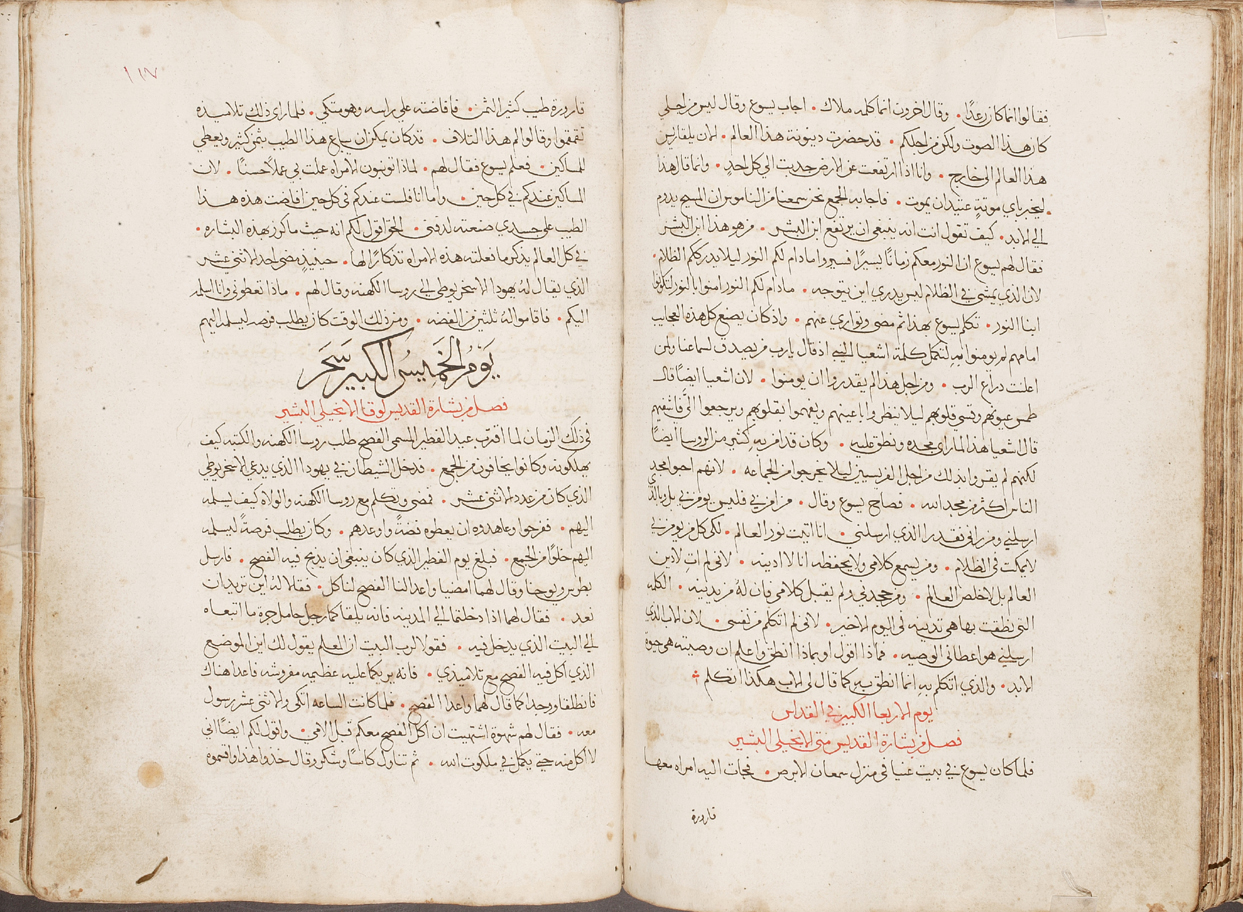 فقالوا انما كان رعدًا • وقال اخرون انما كلمه ملاك • اجاب يسوع وقال ليس من اجلي
كان هذا الصوت ولكن من اجلكم • قد حضرت دينونة هذا العالم • الان يلقا رئيس
هذا العالم الى خارج • وانا اذا ارتفعت عن الارض جذبت الي كل احدٍ • وانما قال هذا
ليخبر باي موتةٍ عتيد ان يموت • فاجابه الجمع نحن سمعنا من الناموس ان المسيح يدوم
الى الابد • كيف تقول انت انه ينبغي ان يرتفع ابن البشر • من هو هذا ابن البشر
فقال لهم يسوع ان النور معكم زمانًا يسيرًا فسيروا مادام لكم النور ليلا يدرككم الظلام •
لان الذي يمشي في الظلام ليس يدري اين يتوجه • مادام لكم النور امنوا بالنور لتكونوا
ابنا النور • تكلم يسوع بهذا ثم مضى وتوارى عنهم • واذ كان يصنع كل هذه العجايب
امامهم لم يومنوا به لتكمل كلمة اشعيا النبي اذ قال يارب من يصدق لسماعنا ولمن
اعلنت ذراع الرب • ومن اجل هذا لم يقدروا ان يومنوا • لان اشعيا ايضًا قال
طمس عيونهم وقسى قلوبهم ليلا ينظروا باعينهم ويفهموا بقلوبهم ويرجعوا الي فاشفيهم
قال اشعيا هذا لما راى مجده ونطق عليه • وكان قد امن به كثير من الروسا ايضًا
لكنهم لم يقروا بذلك من اجل الفريسيين ليلا يخرجوا من الجماعه • لانهم احبوا مجد
الناس اكثر من مجد الله • فصاح يسوع وقال • من امن بي فليس يومن بي بل بالذي
ارسلني ومن راني فقد را الذي ارسلني • انا اتيت نور العالم • لكي كل من يومن بي
لا يمكث في الظلام • ومن يسمع كلامي ولا يحفظه انا لا ادينه • لاني لم ات لادين
العالم بل لاخلص العالم • ومن جحدني ولم يقبل كلامي فان لهُ من يدينه • الكلمه
التي نطقت بها هي تدينه في اليوم الاخير • لاني لم اتكلم من نفسي • لان الاب الذي
ارسلني هو اعطاني الوصيه • فماذا اقول او بماذا انطق واعلم ان وصيته هي حيوة
الابد • والذي اتكلم به انما انطق به كما قال لي الاب هكذا اتكلم
يوم الاربعا الكبير في القداس
فصل من بشارة القديس متى الانجيلي البشير
فلما كان يسوع في بيت عنيا في منزل سمعان الابرص • فجات اليه امراه معها
قارورة
١١٧
قارورة طيب كثير الثمن • فافاضته على راسه وهو متكي • فلما راى ذلك تلاميذه
تقمقموا وقالوا لم هذا التلاف • قد كان يمكن ان يباع هذا الطيب بثمن كثير ويعطى
للمساكين • فعلم يسوع فقال لهم • لماذا تونبون الامراه عملت بي عملًا حسنًا • لان
المساكين عندكم في كل حين • واما انا فلست عندكم في كل حين افاضت هذه هذا
الطيب على جسدي صنعته لدفني • الحق اقول لكم انه حيث ما كرز بهذه البشاره •
في كل العالم يذكر ما فعلته هذه الامراه تذكارًا لها • حينيذٍ مضى احد الاثنى عشر
الذي يقال لهُ يهودا الاسخريوطي الى روسا الكهنه وقال لهم • ماذا تعطوني وانا اسلمه
اليكم • فاقاموا لهُ ثلثين من الفضه • ومن ذلك الوقت كان يطلب فرصه ليسلمه اليهم
يَوْمُ الخَمِيسُ الكبير سَحَر
فصل من بشارة القديس لوقا الانجيلي البشير
في ذلك الزمان لما اقترب عيد الفطير المسمى الفصح طلب روسا الكهنه والكتبه كيف
يهلكونه وكانوا يخافون من الجمع • فدخل الشيطان في يهودا الذي يدعى الاسخريوطي
الذي كان من عدد الاثنى عشر • فمضى وتكلم مع روسا الكهنه والولاة كيف يسلمه
اليهم • ففرحوا وعاهدوه ان يعطوه فضةً واوعدهم • وكان يطلب فرصةً ليسلمه
اليهم خلوًا من الجمع • فبلغ يوم الفطير الذي كان ينبغي ان يذبح فيه الفصح • فارسل
بطرس ويوحنا وقال لهما امضيا واعدا لنا الفصح لناكل • فقالا لهُ اين تريد ان
نعد • فقال لهما اذا دخلتما الى المدينه فانه يلقاكما رجل حامل جرة ما اتبعاه
الى البيت الذي يدخل فيه • فقولا لرب البيت ان المعلم يقول لك اين الموضع
الذي اكل فيه الفصح مع تلاميذي • فانه يريكما عليه عظيمه مفروشه فاعدا هناك
فانطلقا ووجدا كما قال لهما واعدا الفصح • فلما كانت الساعه اتكى والاثنى عشر رسول
معه • فقال لهم شهوة اشتهيت ان اكل الفصح معكم قبل الامي • واقول لكم ايضًا اني
لا اكل منه حتى يكمل في ملكوت الله • ثم تناول كاسًا وشكر وقال خذوا هذا واقسموه